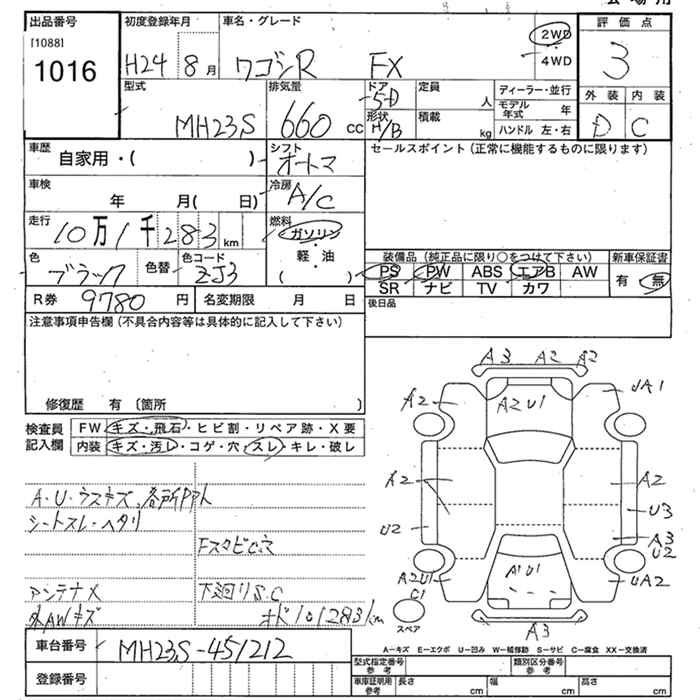 会場用
出品番号 初度登録年月 車名・グレード 評価点
[1088]
1016
H24 8月 ワゴンR FX 2WD 4WD 3
型式 排気量 ドア 定員 ディーラー・並行 外装 内装
MH23S 660cc 5D 人 モデル年式 年 D C
形状 積載
H/B kg ハンドル 左・右
車歴 シフト セールスポイント(正常に機能するものに限ります)
自家用・( ) オートマ
車検 冷房
年 月( 日) A/C
走行 燃料
10万1千283km ガソリン
軽・油
( )
色 色替 色コード 装備品(純正品に限り○をつけて下さい) 新車保証書
ブラック ZJ3 PS PW ABS エアB AW 有 無
SR ナビ TV カワ
R券 9780円 名変期限 月 日 後日品
注意事項申告欄(不具合内容等は具体的に記入して下さい)
修復歴 有 〔箇所 〕
検査員記入欄 FW キズ・飛石・ヒビ割・リペア跡・X要
内装 キズ・汚レ・コゲ・穴・スレ・キレ・破レ
A・U・ウスキズ、各所
シートスレ・ヘタリ
アンテナX 下廻りS.C
外AWキズ オド101283km
A3 A2 A2
A2 A2U1 UA1
A2 A2
U3
U2 A3
U2
A2U1 A1U1 UA2
C1
スペア A3
A-キズ E-エクボ U-凹み W-補修跡 S-サビ C-腐食 XX-交換済
車台番号 MH23S-451212
型式指定番号 参考 類別区分番号 参考
登録番号 車庫証明用 参考 長さ cm 幅 cm 高さ cm